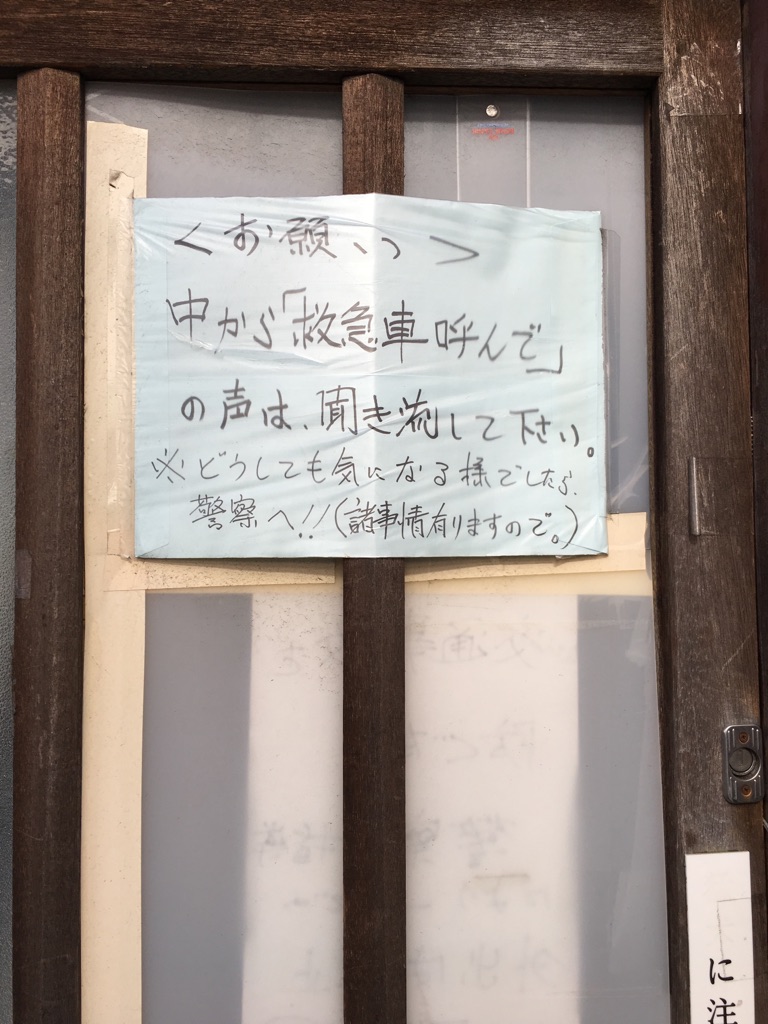 <お願い>
中から「救急車呼んで」
の声は、聞き流して下さい。
※どうしても気になる様でしたら、
警察へ!!(諸事情有りますので。)
に注